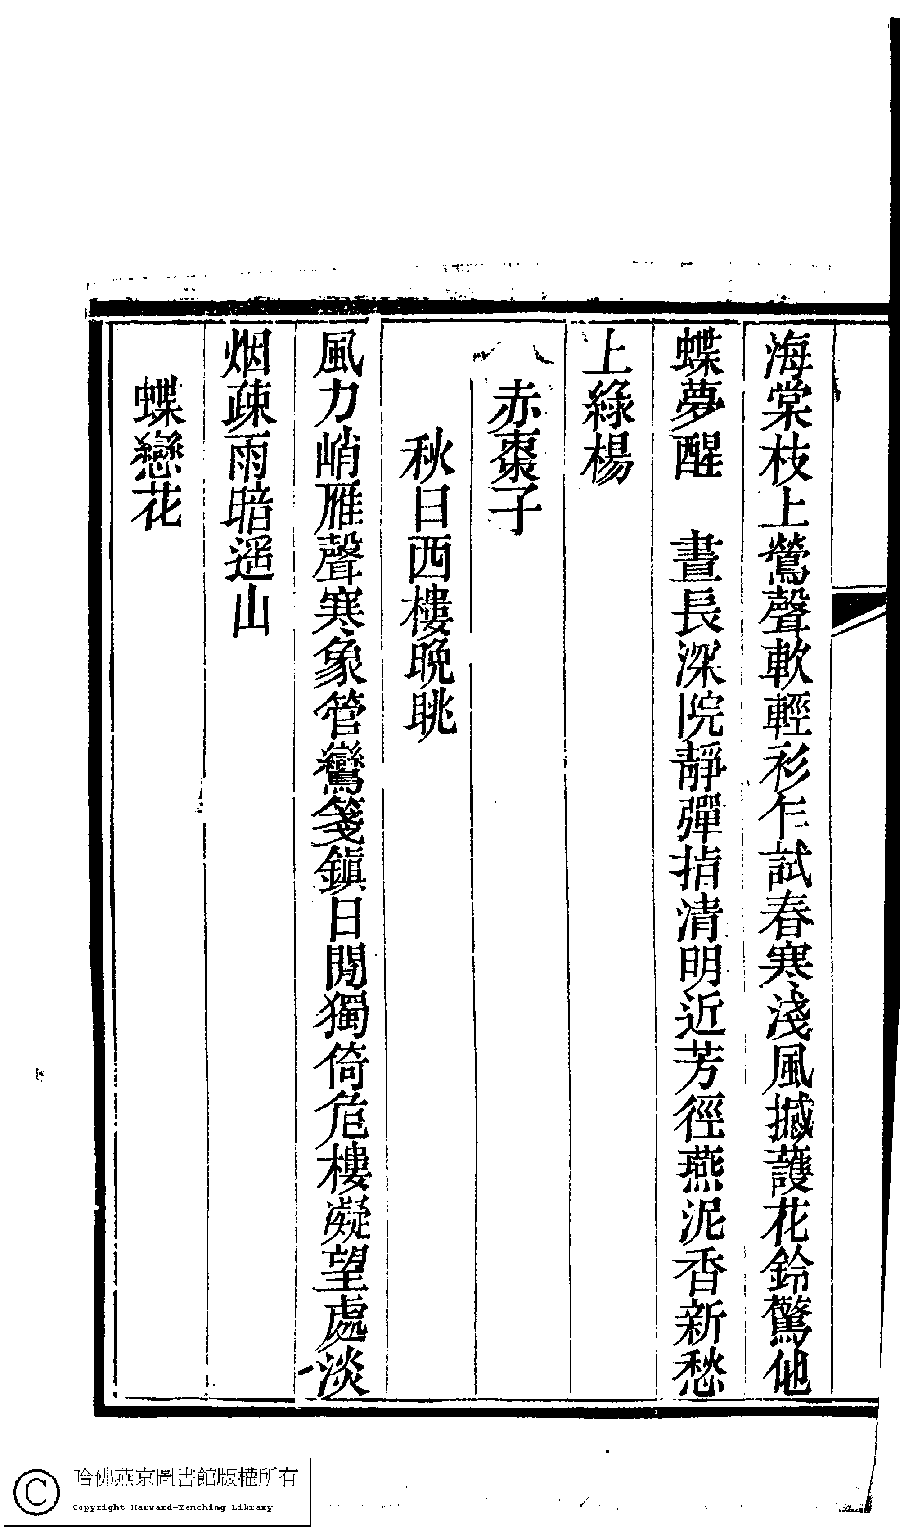 海棠枝上鶯聲軟輕衫乍試春寒淺風撼護花鈴驚他
蝶夢醒　晝長深院靜彈指清明近芳徑燕泥香新愁
上綠楊
赤棗子
秋日西樓晚眺
風力峭雁聲寒象管鸞箋鎮日閒獨倚危樓凝望處淡
烟疎雨暗遥山
蝶戀花
哈佛燕京圖書館版權所有
Copyright Harvard-Yenching Library